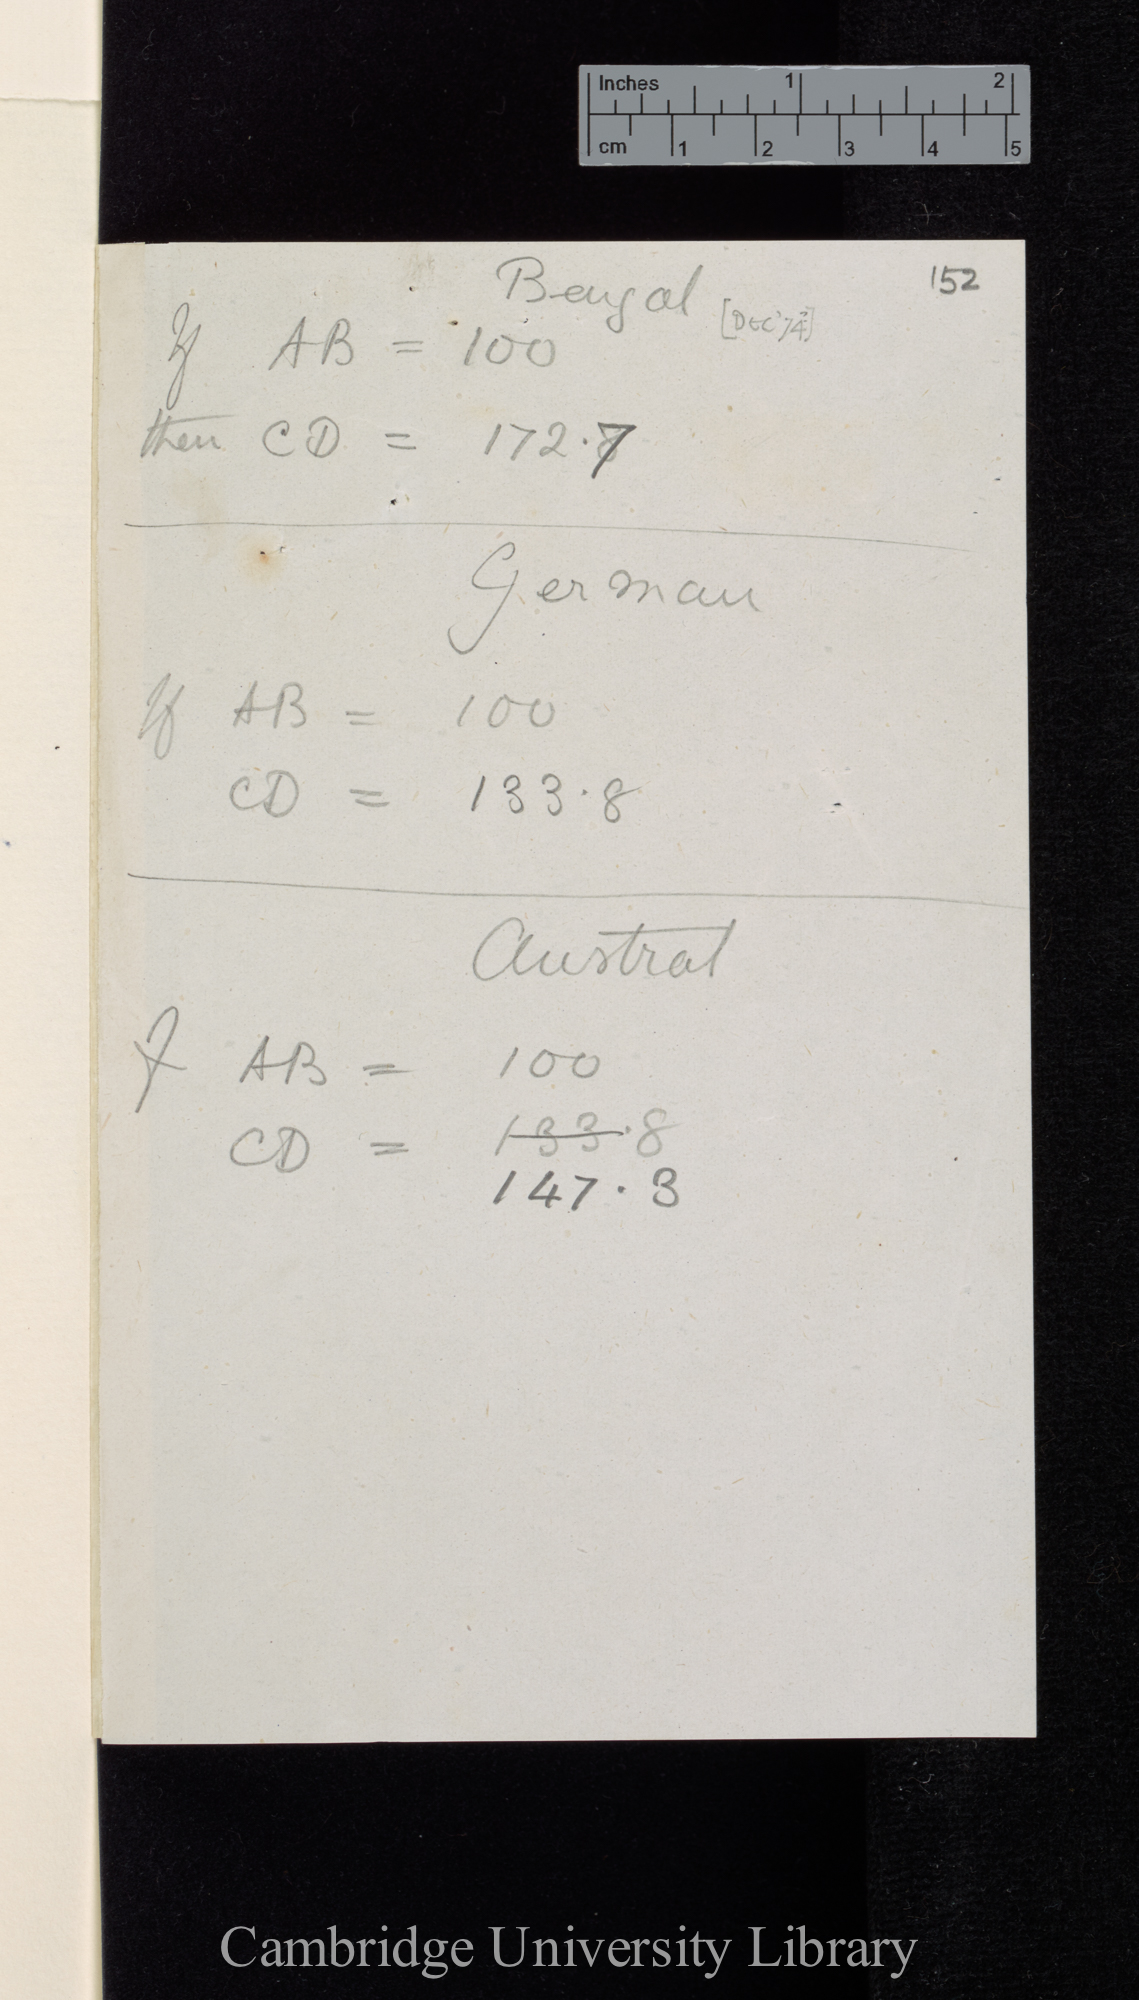 Inches 1 2
cm 1 2 3 4 5
152
Bengal
[DEC '74?]
If AB = 100
then CD = 172·7
German
If AB = 100
CD = 133·8
Austral
If AB = 100
CD = 133·8
147·3
Cambridge University Library